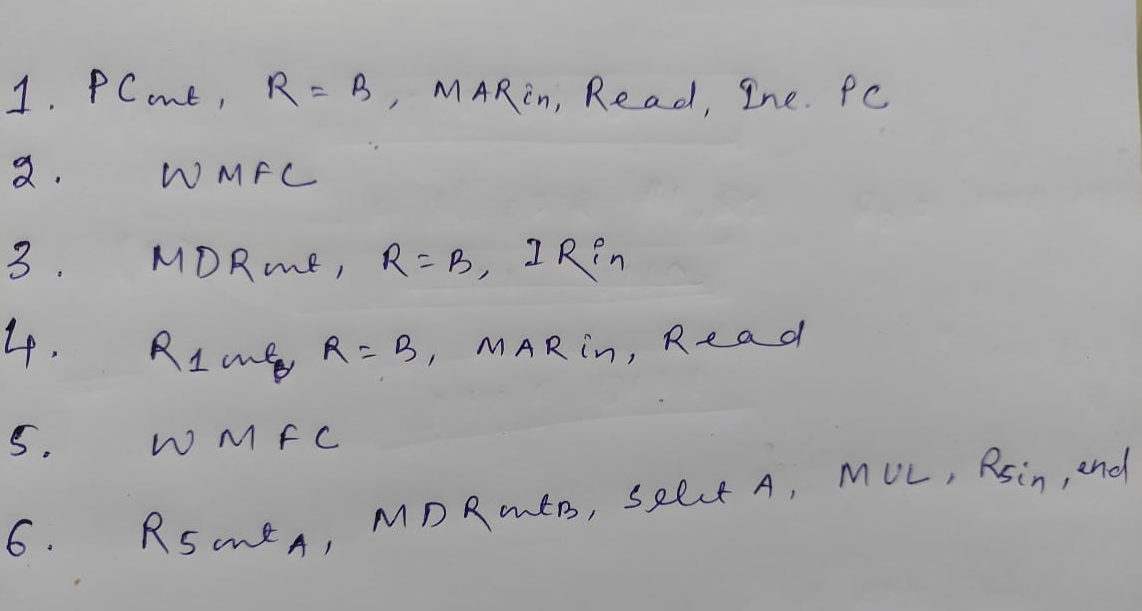 1. PCout, R = B, MARin, Read, Inc. PC
2. WMFC
3. MDRout, R = B, IRin
4. R1outB, R = B, MARin, Read
5. WMFC
6. R5outA, MDRoutB, Select A, MUL, R5in, end